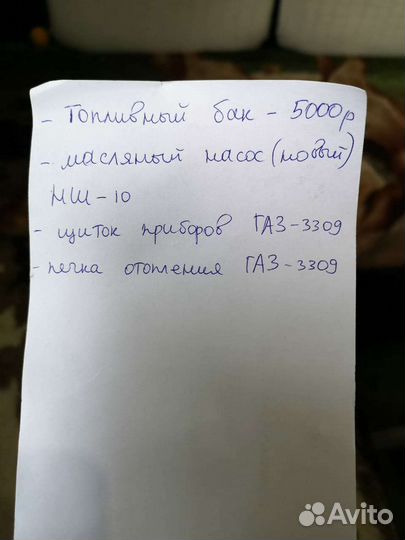 - Топливный бак - 5000р
- масляный насос (новый)
НШ-10
- щиток приборов ГАЗ-3309
- печка отопления ГАЗ-3309
Avito